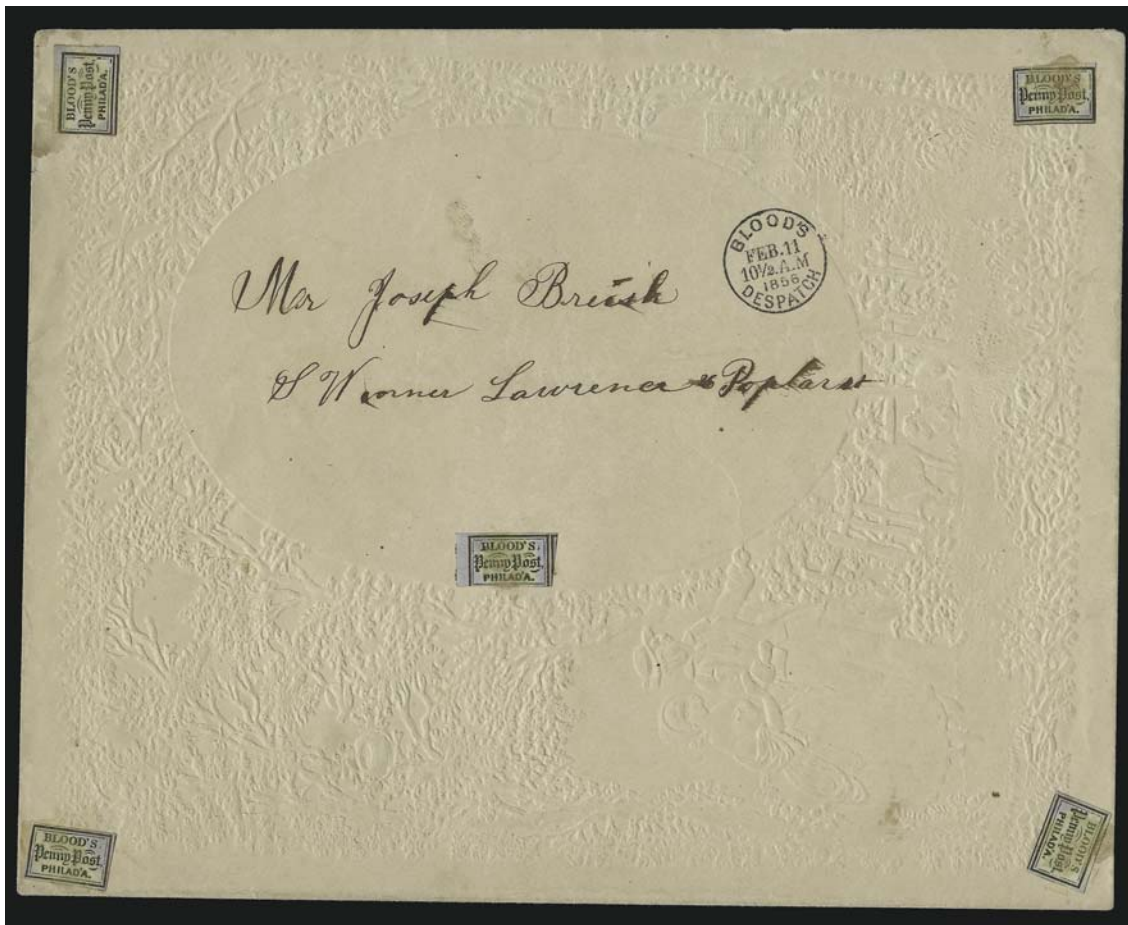 BLOOD'S
Penny Post,
PHILAD'A.
BLOOD'S
Penny Post,
PHILAD'A.
BLOOD'S
FEB. 11
10½ A.M
1856
DESPATCH
Mr Joseph
Lawrence & Poplar st
BLOOD'S
Penny Post,
PHILAD'A.
BLOOD'S
Penny Post,
PHILAD'A.
BLOOD'S
Penny Post,
PHILAD'A.